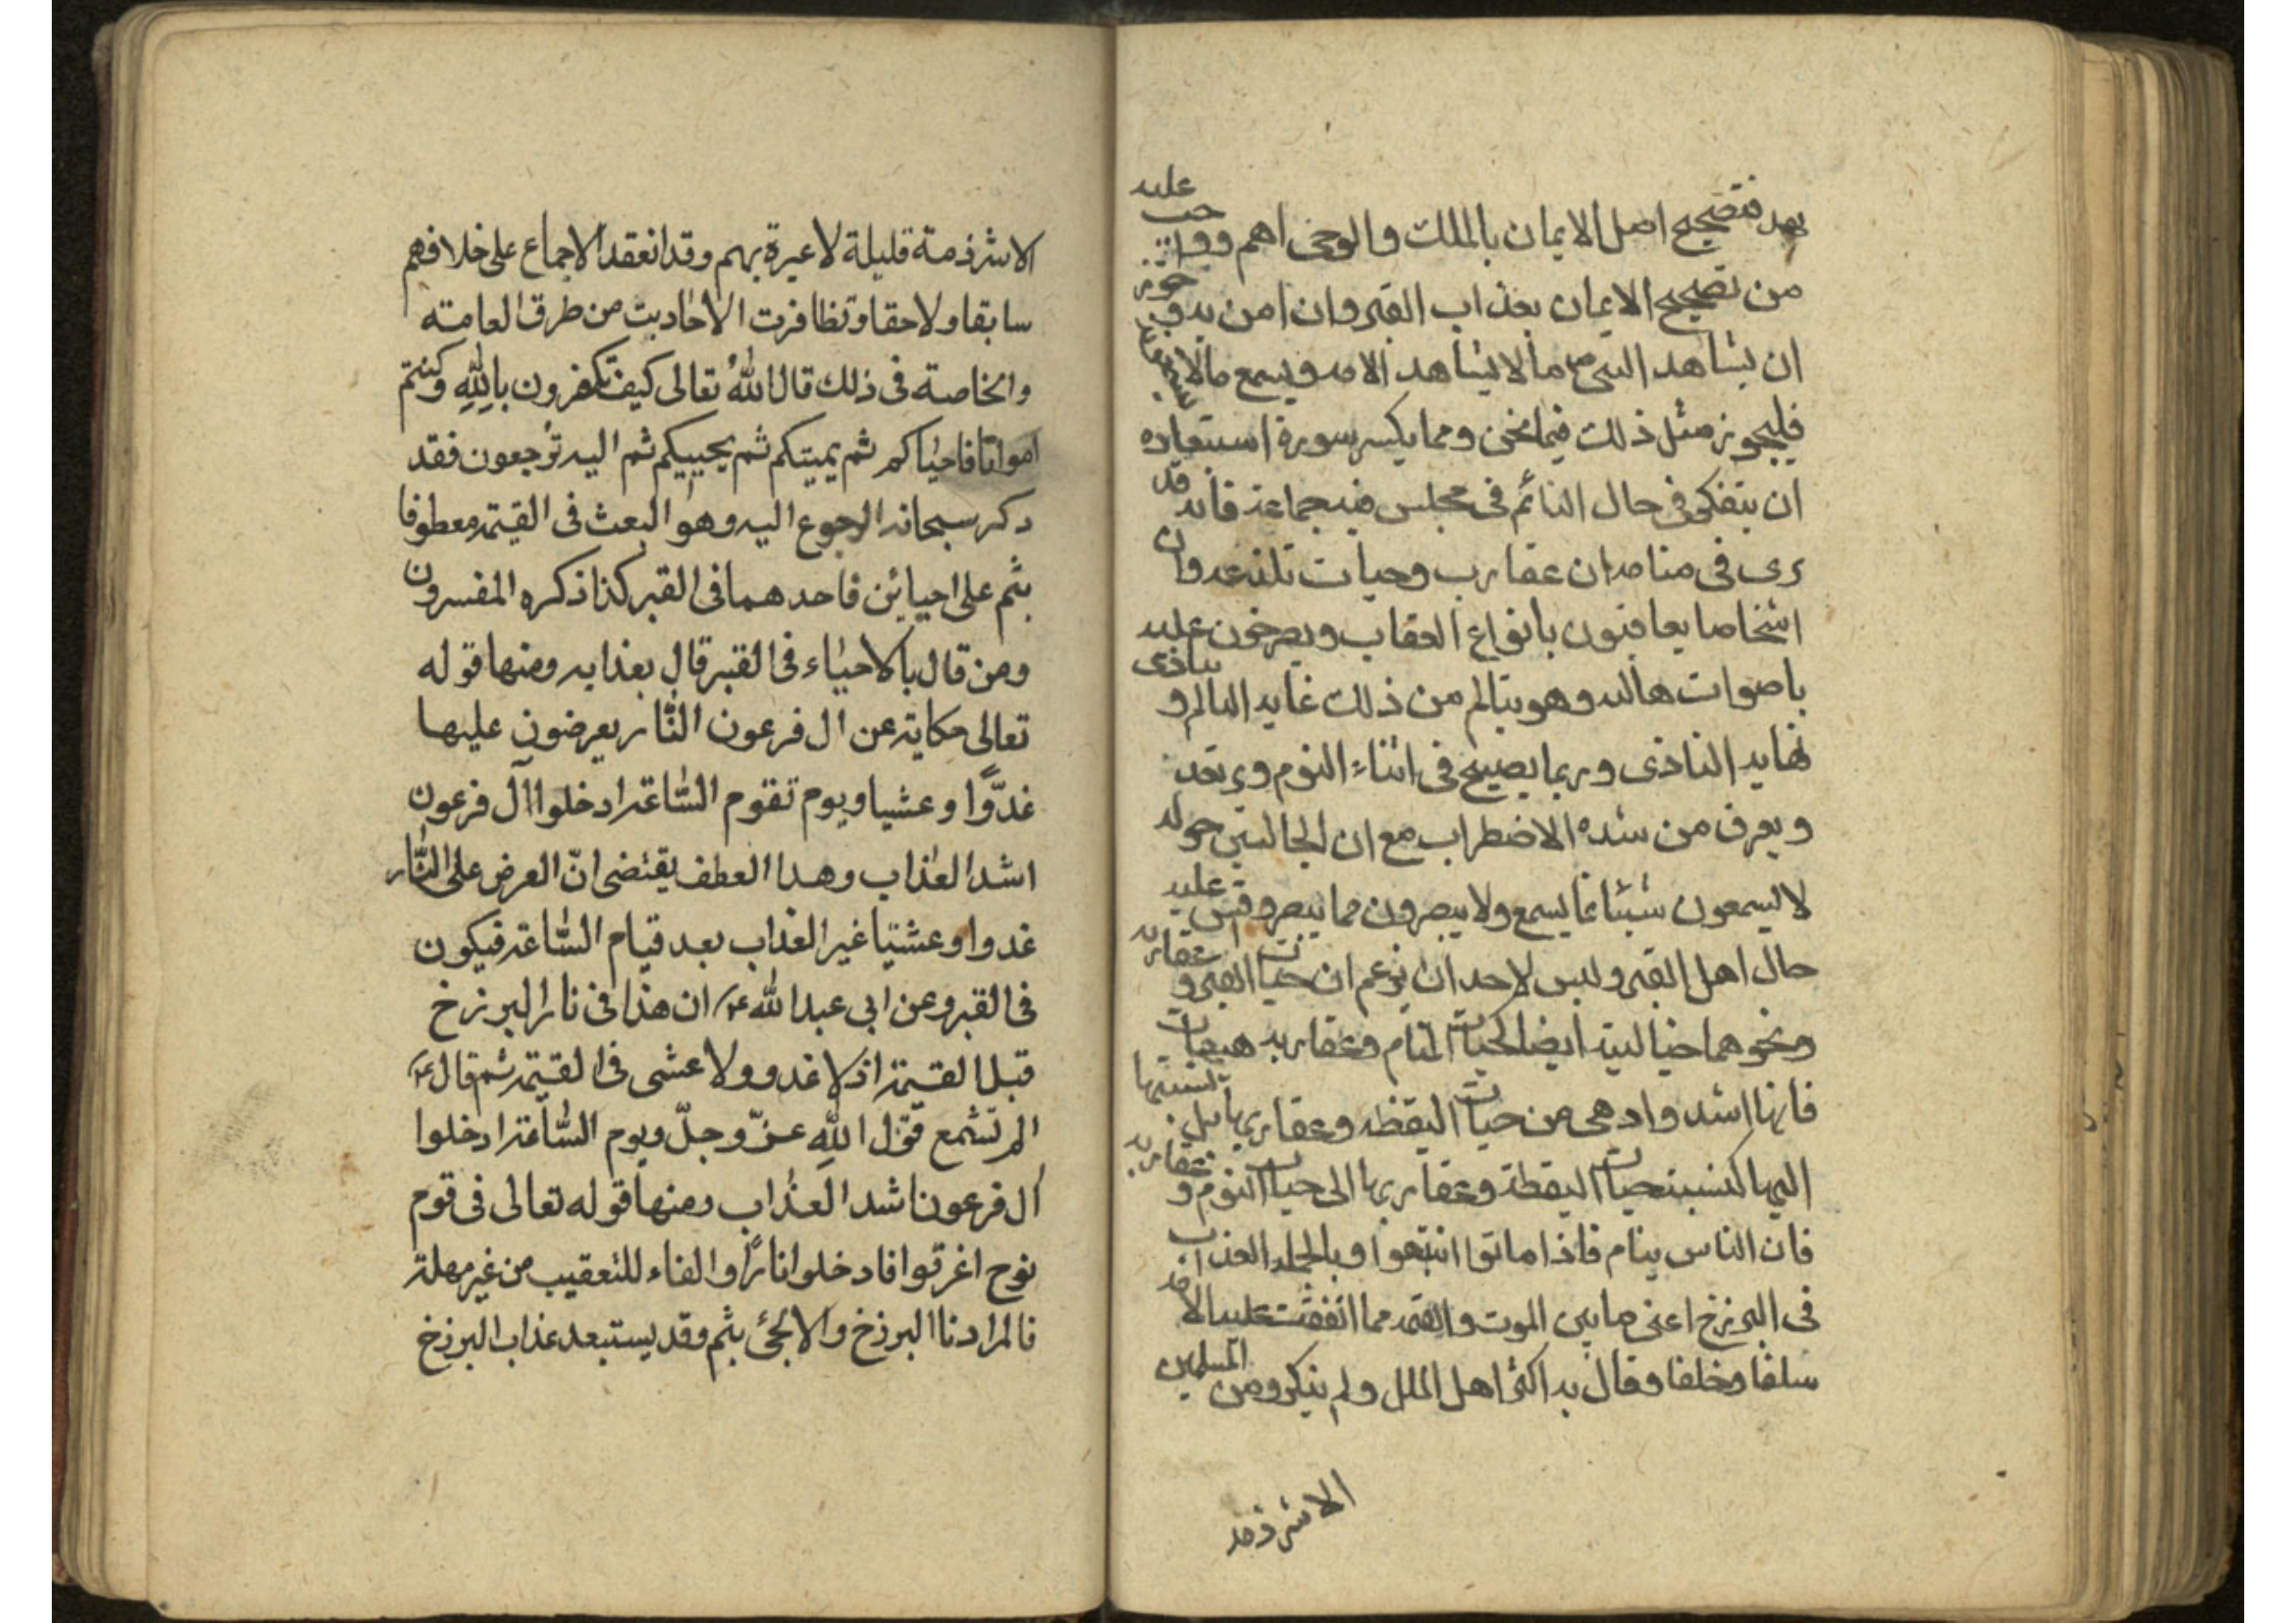 بهد فتصحيح اصل الايمان بالملك والوحى اهم وواجب عليه
من تصحيح الايمان بعذاب القبر وان امن به وجوز
ان يشاهد النبى ص ما لا يشاهد الامه ويسمع ما لا يسمعونه
فليجوز مثل ذلك فيما نحن ومما يكسر سورة استبعاده
ان يتفكر فى حال النائم فى مجلس فيه جماعة فانه قد
يرى فى منامه ان عقارب وحيات تلذعه وان
اشخاصا يعاقبون بانواع العقاب ويصرخون عليه
باصوات هائله وهو يتالم من ذلك غايه التالم و يتاذى
نهايه التاذى وربما يصيح فى اثناء النوم ويرتعد
ويعرق من شده الاضطراب مع ان الجالسين حوله
لا يسمعون شيئا مما يسمع ولا يبصرون مما يبصر وقس عليه
حال اهل القبر وليس لاحد ان يزعم ان حيات القبر و عقاربه
ونحوهما خياليته ايضا كحيات المنام وعقاربه هيهات
فانها اشد وادهى من حيات اليقظه وعقاربها بل نسبتها
اليها كنسبة حيات اليقظة وعقاربها الى حيات النوم و عقاربه
فان الناس ينام فاذا ماتوا انتبهوا وبالجمله العذاب
فى البرزخ اعنى ما بين الموت والقيمه مما اتفقت عليه الامه
سلفا وخلفا وقال به اكثر اهل الملل ولم ينكره من المسلمين
الا شرذمه
الا شرذمة قليلة لا عبرة بهم وقد انعقد الاجماع على خلافهم
سابقا ولاحقا وتظافرت الاحاديث من طرق العامة
والخاصة فى ذلك قال اللهُ تعالى كيف تكفرون باللّهِ وكنتم
امواتا فاحياكم ثم يميتكم ثم يحييكم ثم اليه تُرجعون فقد
ذكر سبحانه الرجوع اليه وهو البعث فى القيمة معطوفا
بثم على احيائين فاحدهما فى القبر كذا ذكره المفسرون
ومن قال بالاحياء فى القبر قال بعذابه ومنها قوله
تعالى حكاية عن ال فرعون النّار يعرضون عليها
غدوًّا وعشيا ويوم تقوم السّاعة ادخلوا آل فرعون
اشد العذاب وهذا العطف يقتضى انّ العرض على النّار
غدوا وعشيا غير العذاب بعد قيام السّاعة فيكون
فى القبر وعن ابى عبد الله ع ان هذا فى نار البرزخ
قبل القيمة اذ لا غدو ولا عشى فى القيمة ثم قال ع
الم تسمع قول اللّهِ عزّ وجلّ ويوم السّاعة ادخلوا
آل فرعون اشد العذاب ومنها قوله تعالى فى قوم
نوح اغرقوا فادخلوا نارًا والفاء للتعقيب من غير مهلة
فالمراد نار البرزخ والا لجئ بثم وقد يستبعد عذاب البرزخ